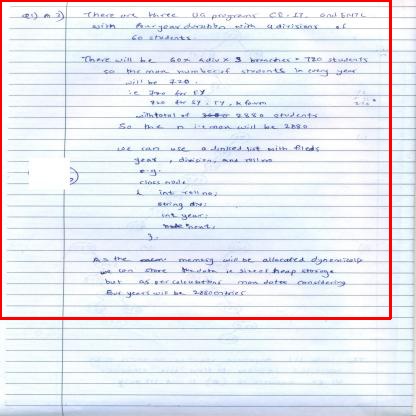 Q1) A 3) There are three UG programs CE, IT, and ENTC
with four year duration with 4 divisions of
60 students
There will be 60 x 4 div x 3 branches = 720 students
so the max number of students in every year
will be 720.
i.e 720 for FY
720 for SY, TY,
with total of 2880 students
So the n i.e max will be 2880
We can use a linked list with fields
year, division, and roll no
e.g.
class node
{ int roll no;
string div;
int year;
node next;
};
As the memory will be allocated dynamically
we can store the data i.e size of heap storage
but as per calculations max data considering
four years will be 2880 entries